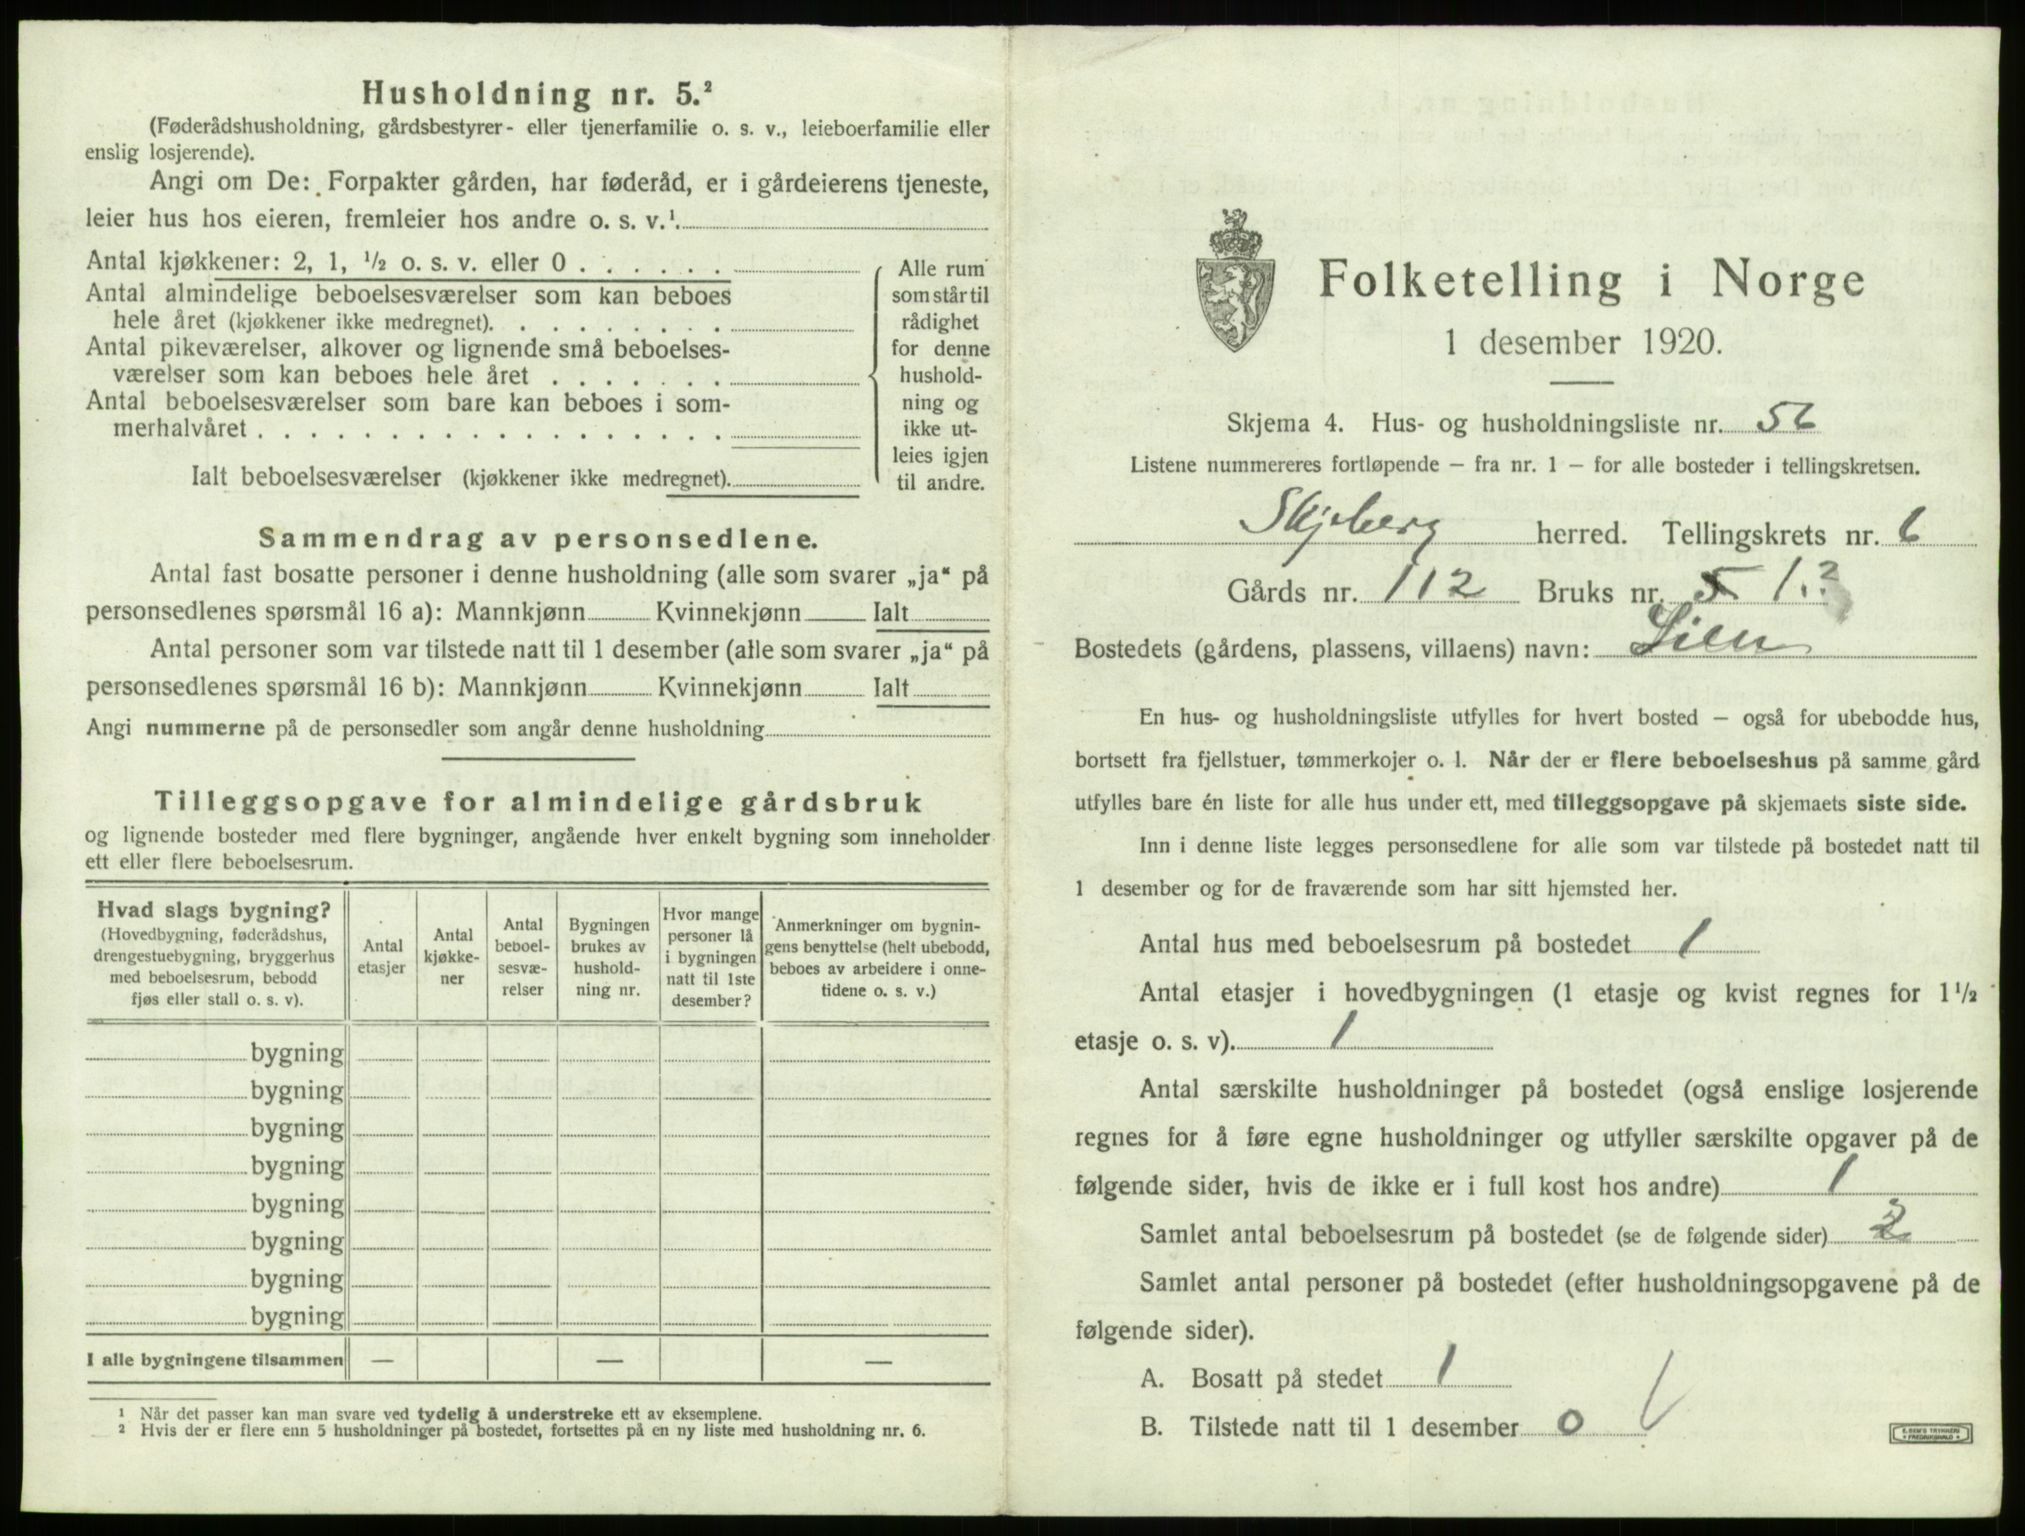 Husholdning nr. 5.²
(Føderådshusholdning, gårdsbestyrer- eller tjenerfamilie o. s. v., leieboerfamilie eller
enslig losjerende).
Angi om De: Forpakter gården, har føderåd, er i gårdeierens tjeneste,
leier hus hos eieren, fremleier hos andre o. s. v.¹
Antal kjøkkener: 2, 1, ½ o. s. v. eller 0
Antal almindelige beboelsesværelser som kan beboes
hele året (kjøkkener ikke medregnet).
Antal pikeværelser, alkover og lignende små beboelses-
værelser som kan beboes hele året
Antal beboelsesværelser som bare kan beboes i som-
merhalvåret
Ialt beboelsesværelser (kjøkkener ikke medregnet).
Alle rum
som står til
rådighet
for denne
hushold-
ning og
ikke ut-
leies igjen
til andre.
Sammendrag av personsedlene.
Antal fast bosatte personer i denne husholdning (alle som svarer „ja“ på
personsedlenes spørsmål 16 a): Mannkjønn Kvinnekjønn Ialt
Antal personer som var tilstede natt til 1 desember (alle som svarer „ja“ på
personsedlenes spørsmål 16 b): Mannkjønn Kvinnekjønn Ialt
Angi nummerne på de personsedler som angår denne husholdning
Tilleggsopgave for almindelige gårdsbruk
og lignende bosteder med flere bygninger, angående hver enkelt bygning som inneholder
ett eller flere beboelsesrum.
Hvad slags bygning?
(Hovedbygning, føderådshus,
drengestuebygning, bryggerhus
med beboelsesrum, bebodd
fjøs eller stall o. s. v).
Antal
etasjer
Antal
kjøkke-
ner
Antal
beboel-
sesvæ-
relser
Bygningen
brukes av
hushold-
ning nr.
Hvor mange
personer lå
i bygningen
natt til 1ste
desember?
Anmerkninger om bygnin-
gens benyttelse (helt ubebodd,
beboes av arbeidere i onne-
tidene o. s. v.)
bygning
bygning
bygning
bygning
bygning
bygning
bygning
bygning
I alle bygningene tilsammen — — —
¹ Når det passer kan man svare ved tydelig å understreke ett av eksemplene.
² Hvis der er flere enn 5 husholdninger på bostedet, fortsettes på en ny liste med husholdning nr. 6.
Folketelling i Norge
1 desember 1920.
Skjema 4. Hus- og husholdningsliste nr. 56
Listene nummereres fortløpende – fra nr. 1 – for alle bosteder i tellingskretsen.
Skjeberg herred. Tellingskrets nr. 6
Gårds nr. 112 Bruks nr. 5 1.?
Bostedets (gårdens, plassens, villaens) navn: Lien
En hus- og husholdningsliste utfylles for hvert bosted – også for ubebodde hus,
bortsett fra fjellstuer, tømmerkojer o. l. Når der er flere beboelseshus på samme gård
utfylles bare én liste for alle hus under ett, med tilleggsopgave på skjemaets siste side.
Inn i denne liste legges personsedlene for alle som var tilstede på bostedet natt til
1 desember og for de fraværende som har sitt hjemsted her.
Antal hus med beboelsesrum på bostedet 1
Antal etasjer i hovedbygningen (1 etasje og kvist regnes for 1½
etasje o. s. v). 1
Antal særskilte husholdninger på bostedet (også enslige losjerende
regnes for å føre egne husholdninger og utfyller særskilte opgaver på de
følgende sider, hvis de ikke er i full kost hos andre) 1
Samlet antal beboelsesrum på bostedet (se de følgende sider) 2
Samlet antal personer på bostedet (efter husholdningsopgavene på de
følgende sider).
A. Bosatt på stedet 1
B. Tilstede natt til 1 desember 0
E. SEM'S TRYKKERI
FREDRIKSHALD